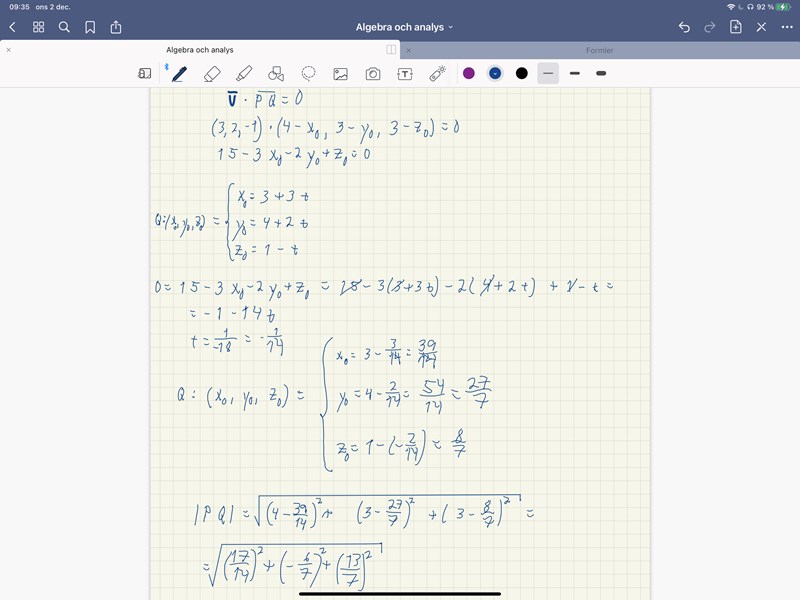 09:35 ons 2 dec.
92 %
Algebra och analys
Algebra och analys
Formler
v̅ · P̅Q̅ = 0
(3, 2, -1) · (4 - x₀, 3 - y₀, 3 - z₀) = 0
15 - 3 x₀ - 2 y₀ + z₀ = 0
Q: (x₀, y₀, z₀) = { x₀ = 3 + 3 t
y₀ = 4 + 2 t
z₀ = 1 - t
0 = 15 - 3 x₀ - 2 y₀ + z₀ = 15 - 3(3 + 3t) - 2(4 + 2t) + 1 - t =
= -1 - 14 t
t = 1/-18 = -1/14
Q: (x₀, y₀, z₀) = { x₀ = 3 - 3/14 = 39/14
y₀ = 4 - 2/14 = 54/14 = 27/7
z₀ = 1 - (-2/14) = 8/7
|PQ| = √((4 - 39/14)² + (3 - 27/7)² + (3 - 8/7)²) =
= √((17/14)² + (-6/7)² + (13/7)²)